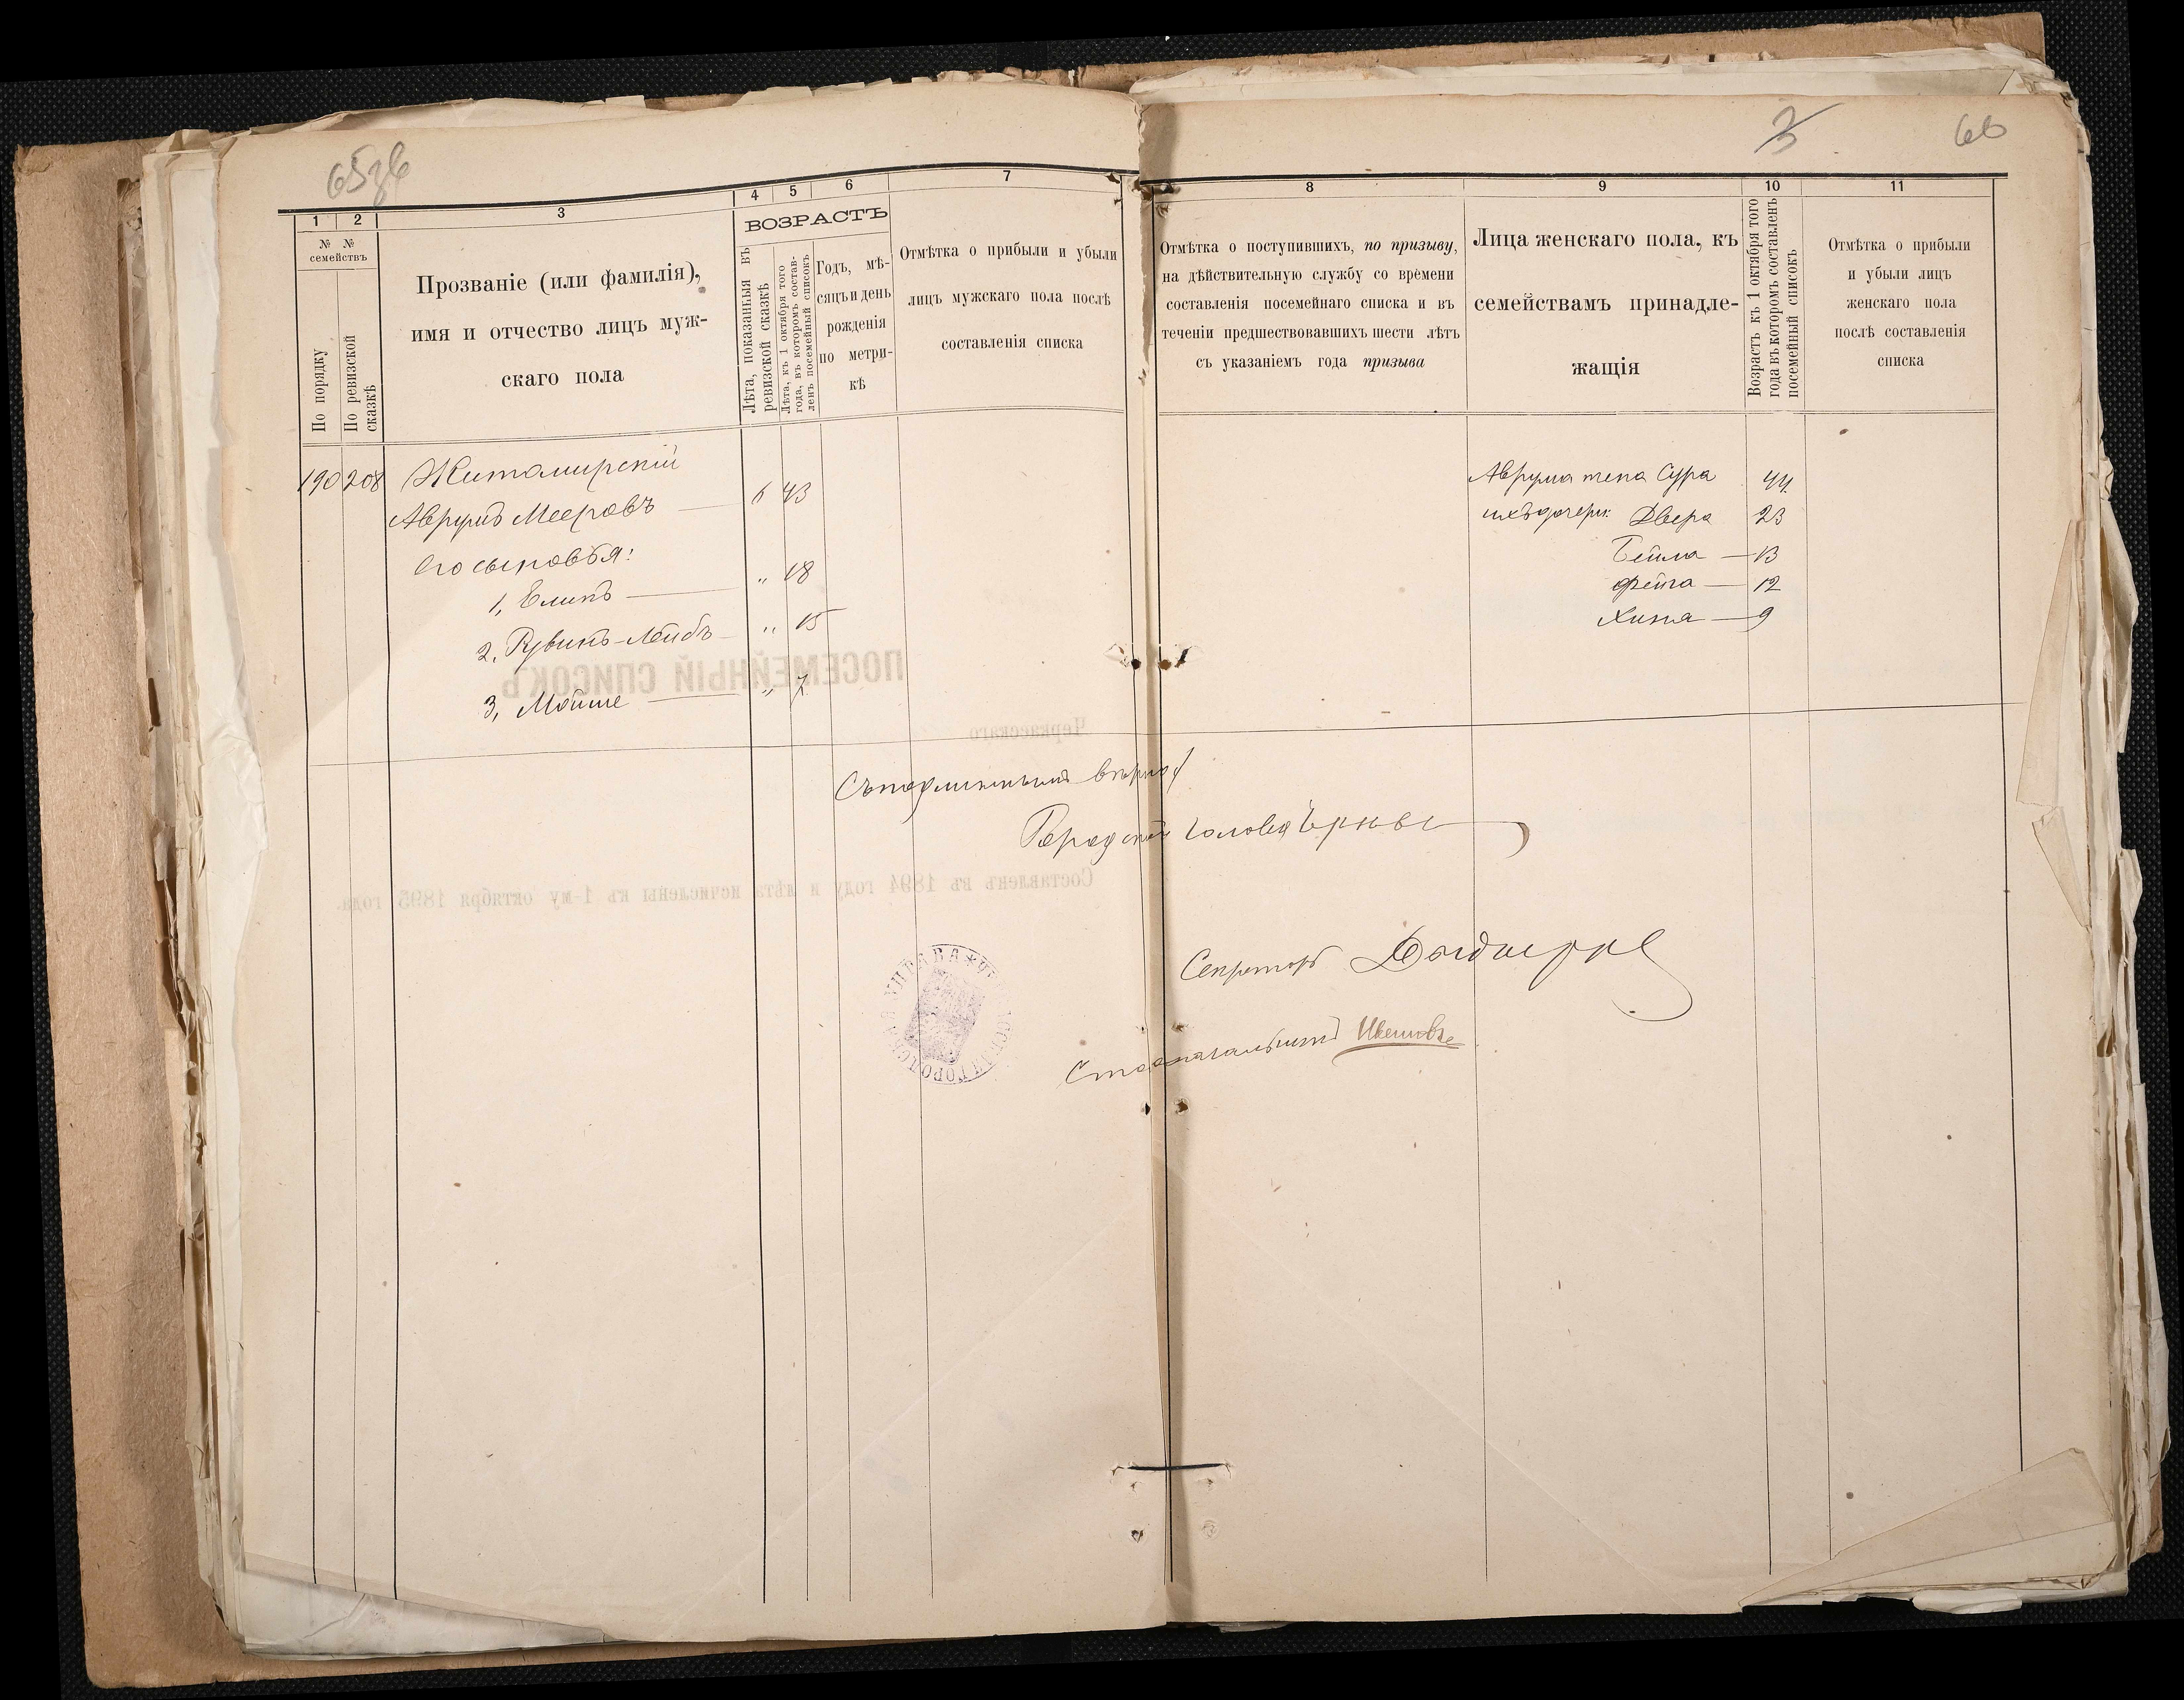 65 зв
3
66
1
2
3
4
5
6
7
8
9
10
11
№ №
семействъ
По порядку
По ревизской
сказкѣ
Прозваніе (или фамилія),
имя и отчество лицъ муж-
скаго пола
ВОЗРАСТЪ
Лѣта, показанныя въ
ревизской сказкѣ
Лѣта, къ 1 октября того
года, въ которомъ состав-
ленъ посемейный списокъ
Годъ, мѣ-
сяцъ и день
рожденія
по метри-
кѣ
Отмѣтка о прибыли и убыли
лицъ мужскаго пола послѣ
составленія списка
Отмѣтка о поступившихъ, по призыву,
на дѣйствительную службу со времени
составленія посемейнаго списка и въ
теченіи предшествовавшихъ шести лѣтъ
съ указаніемъ года призыва
Лица женскаго пола, къ
семействамъ принадле-
жащія
Возрастъ къ 1 октября того
года въ которомъ составленъ
посемейный списокъ
Отмѣтка о прибыли
и убыли лицъ
женскаго пола
послѣ составленія
списка
190 208 Житомирскій
Аврумъ Мееровъ — 6 43
Его сыновья:
1, Еликъ — „ 18
2, Рувинъ-Лейбъ — „ 15
3, Мойше — „ 7
Аврума жена Сура 44
ихъ дочери: Двера 23
Бейла — 13
Фейга — 12
Хиня — 9
ПОСЕМЕЙНЫЙ СПИСОКЪ
Черкасскаго
Съ подлиннымъ вѣрно
Городской Голова
Составленъ въ 1894 году и лѣта исчислены къ 1-му октября 1895 года.
Секретарь
Столоначальникъ
ГОРОДСКАЯ УПРАВА